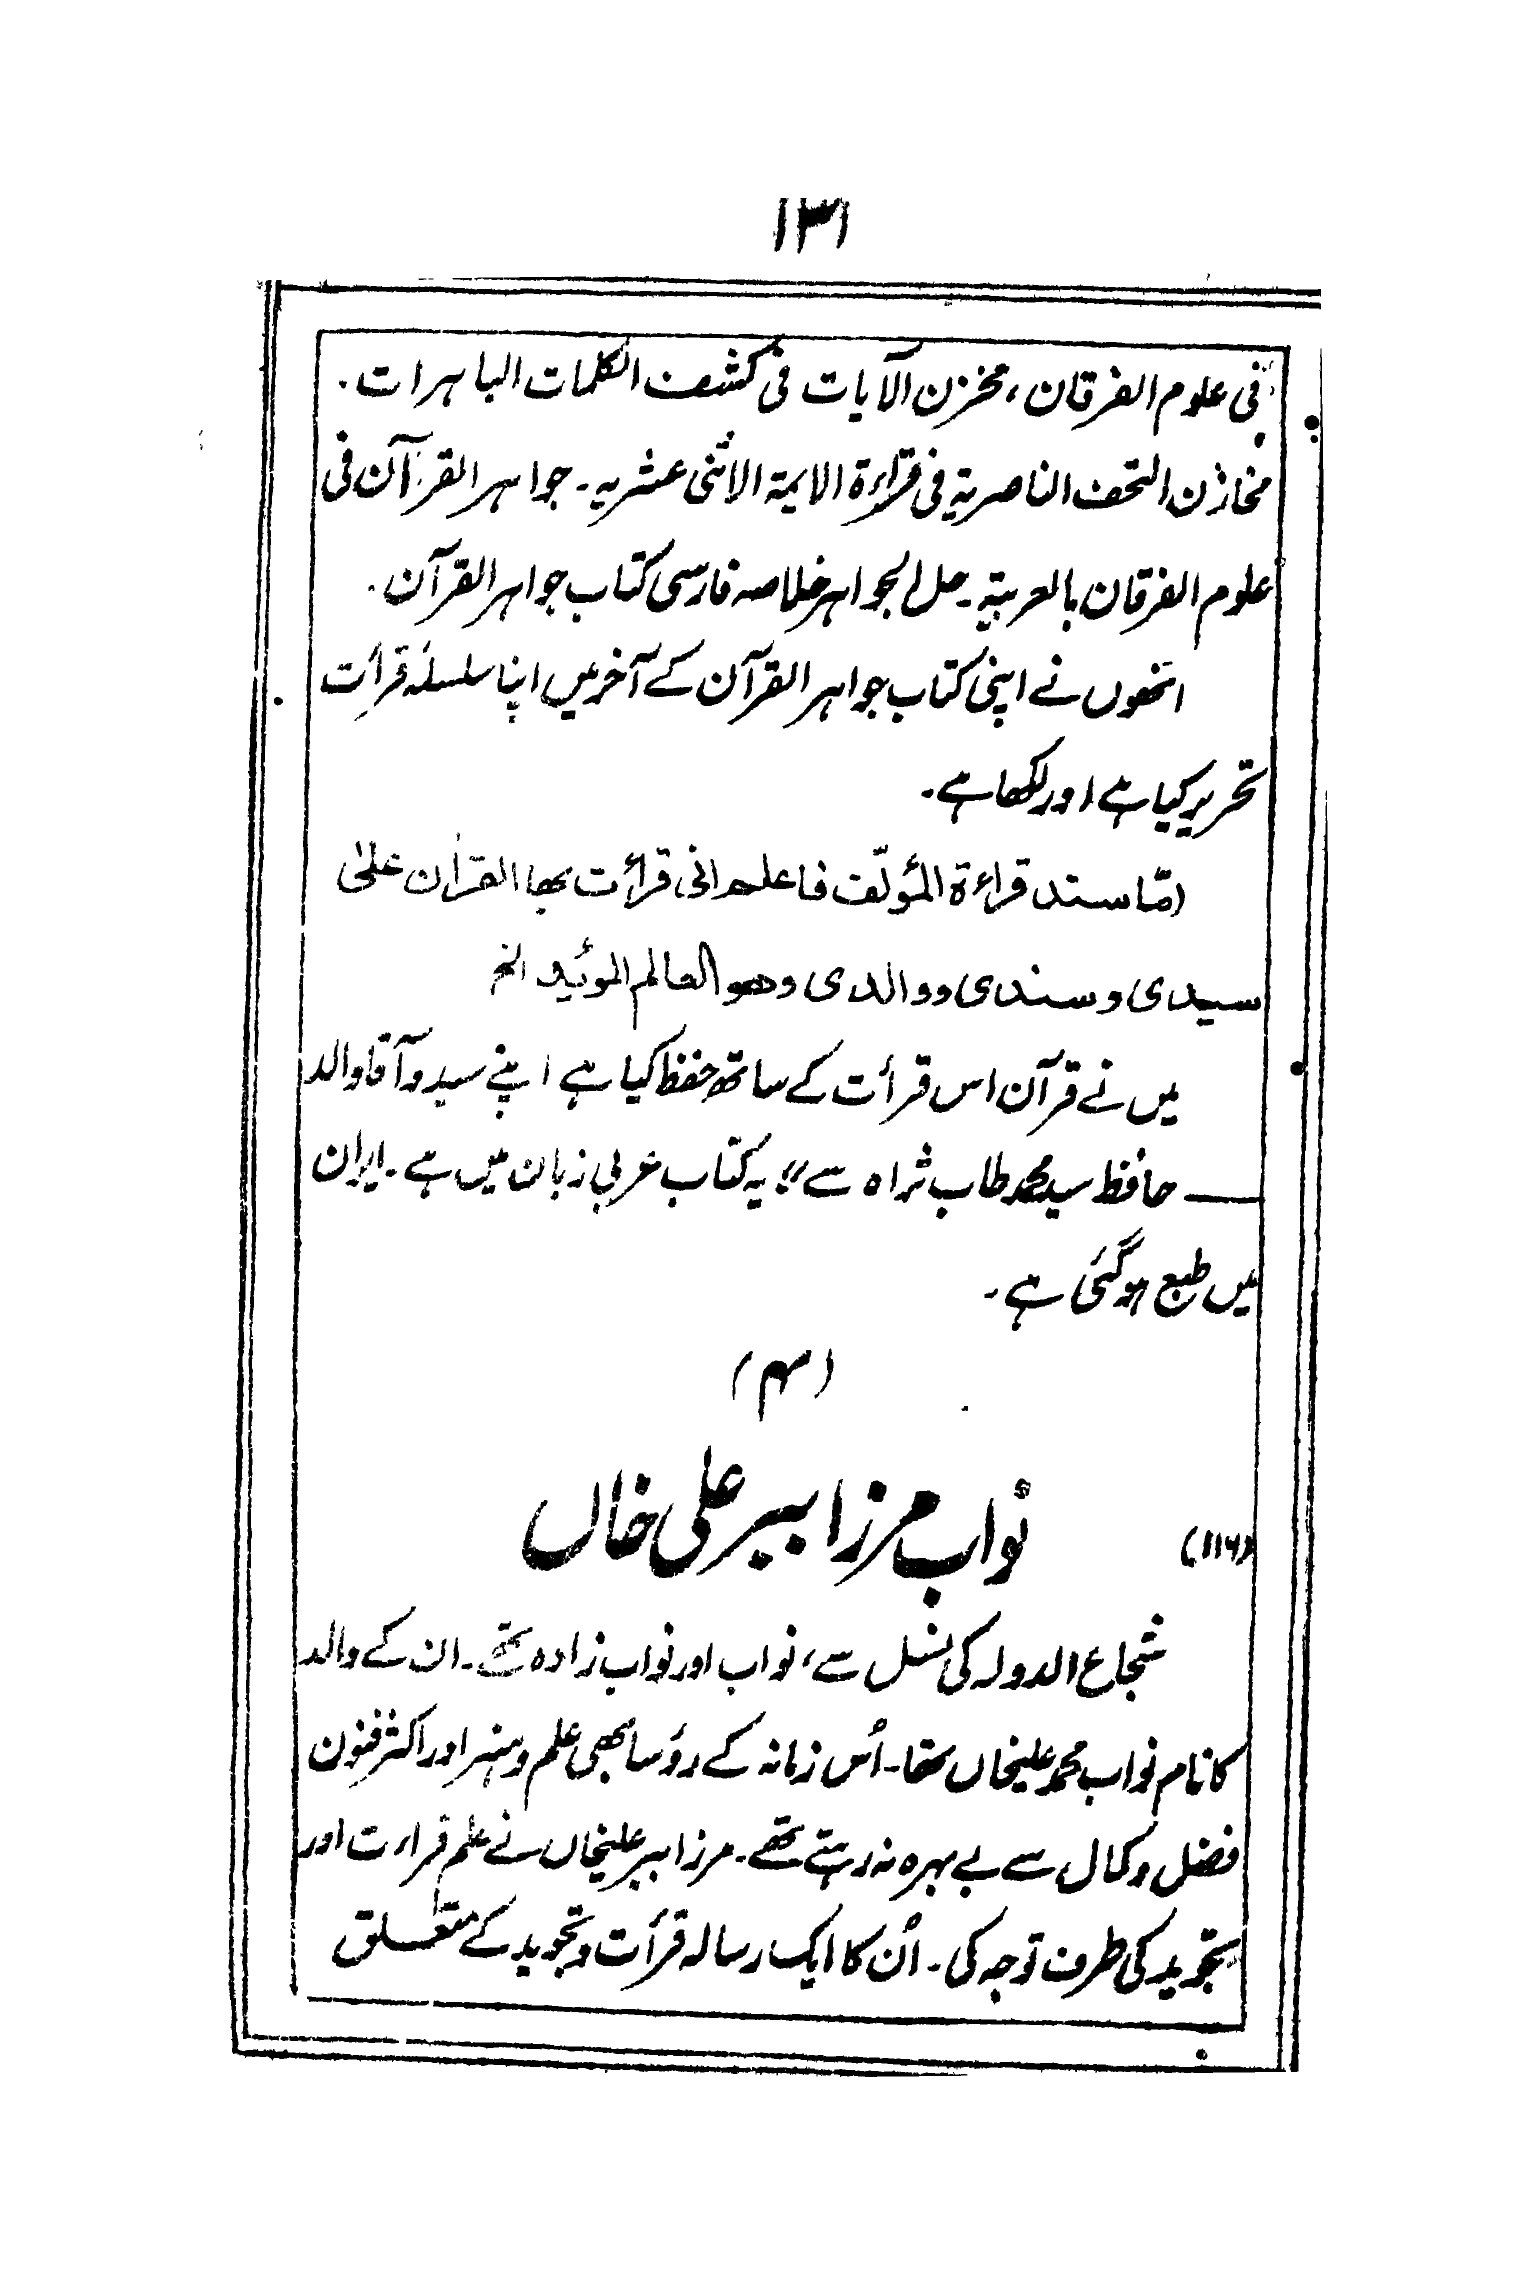 ۱۳۱
فی علوم الفرقان، مخزن الآیات فی کشف الکلمات الباہرات۔
مخازن التحف الناصریۃ فی قراءۃ الایمۃ الاثنی عشریہ۔ جواہر القرآن فی
علوم الفرقان بالعربیۃ۔ حل الجواہر خلاصہ فارسی کتاب جواہر القرآن۔
انھوں نے اپنی کتاب جواہر القرآن کے آخر میں اپنا سلسلۂ قرأت
تحریر کیا ہے اور لکھا ہے۔
امّا سند قراءۃ المؤلّف فاعلم انی قرأت بھا القراٰن علیٰ
سیدی و سندی ووالدی وھو العالم الموئید الخ
میں نے قرآن اس قرأت کے ساتھ حفظ کیا ہے اپنے سید و آقا والد
—— حافظ سید محمد طاب ثراہ سے" یہ کتاب عربی زبان میں ہے۔ ایران
میں طبع ہوگئی ہے۔
(۴)
(۱۱۶) نواب مرزا ببیر علی خاں
شجاع الدولہ کی نسل سے، نواب اور نواب زادہ تھے۔ ان کے والد
کا نام نواب محمد علیخاں تھا۔ اُس زمانہ کے رؤسا بھی علم و ہنر اور اکثر فنون
فضل و کمال سے بے بہرہ نہ رہتے تھے۔ مرزا ببیر علیخاں نے علم قراءت اور
تجوید کی طرف توجہ کی۔ اُن کا ایک رسالہ قرأت و تجوید کے متعلق